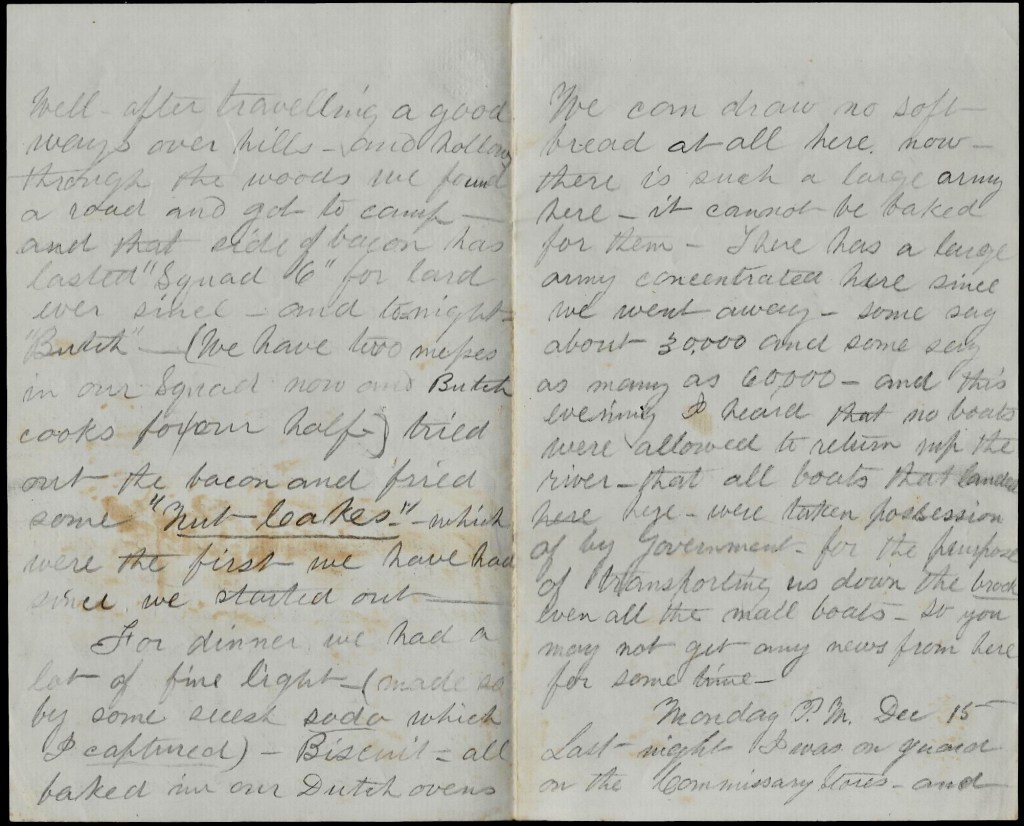 Well - after travelling a good
ways over hills - and hollows
through the woods we found
a road and got to camp —
and that side of bacon has
lasted "Squad 6" for lard
ever since - and to-night -
"Butch" — (We have two messes
in our Squad now and Butch
cooks for our half -) tried
out the bacon and fried
some "Nut-Cakes" - which
were the first we have had
since we started out —
For dinner we had a
lot of fine light - (made so
by some secesh soda which
I captured) - Biscuit - all
baked in our Dutch ovens
We can draw no soft
bread at all here now -
there is such a large army
here - it cannot be baked
for them - There has a large
army concentrated here since
we went away - some say
about 30,000 and some say
as many as 60,000 - and this
evening I heard that no boats
were allowed to return up the
river - that all boats that landed
here here - were taken possession
of by Government - for the purpose
of transporting us down the brook
even all the mail boats - so you
may not get any news from here
for some time -
Monday P.M. Dec 15
Last night I was on guard
on the Commissary Stores - and